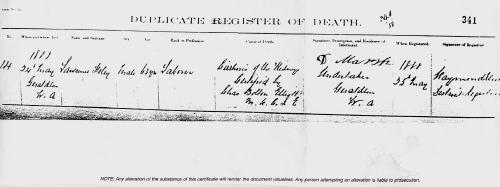 DUPLICATE REGISTER OF DEATH.
341
No.
When and where died.
Name and Surname.
Sex
Age
Rank or Profession.
Cause of Death.
Signature, Description, and Residence of Informant.
When Registered.
Signature of Registrar
1888
24th May
Geraldton
W. A
Lawrence Foley
male
60 yrs
Labourer
of the Kidneys
Certified by
Chas Bolton
M. R. C. S. E
Marsh
Undertaker
Geraldton
W. A
1888
25th May
District Registrar
NOTE: Any alteration of the substance of this certificate will render the document valueless. Any person attempting an alteration is liable to prosecution.